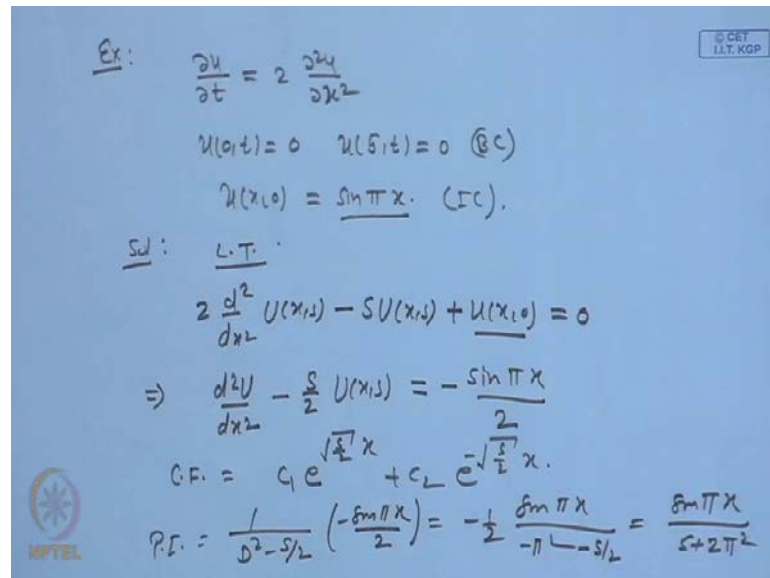 Ex: ∂u/∂t = 2 ∂²u/∂x²
© CET
I.I.T. KGP
u(0,t) = 0 u(5,t) = 0 (BC)
u(x,0) = sin π x. (IC).
Sol: L.T.
2 d²/dx² U(x,s) - S U(x,s) + u(x,0) = 0
⇒ d²U/dx² - S/2 U(x,s) = - sin π x / 2
C.F. = C₁ e^{√(S/2) x} + C₂ e^{-√(S/2) x}.
P.I. = 1/(D² - S/2) (- sin π x / 2) = - 1/2 sin π x / (-π² - S/2) = sin π x / (S + 2π²)
NPTEL